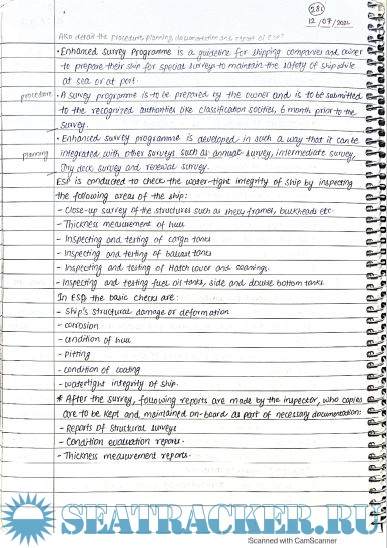 281
12/07/202
Also detail the procedure, planning, documentation and report of ESP?
• Enhanced Survey Programme is a guideline for shipping companies and owner
to prepare their ship for special surveys to maintain the safety of ship while
at sea or at port.
procedure • A survey programme is to be prepared by the owner and is to be submitted
to the recognized authorities like classification socities, 6 month prior to the
survey.
• Enhanced survey programme is developed in such a way that it can be
planning integrated with other surveys such as annual survey, intermediate survey,
Dry dock survey and renewal survey.
ESP is conducted to check the water-tight integrity of ship by inspecting
the following areas of the ship:
- Close-up survey of the structures such as shell frames, bulkheads etc.
- Thickness measurement of hull
- Inspecting and testing of cargo tanks
- Inspecting and testing of ballast tanks
- Inspecting and testing of Hatch cover and coamings.
- Inspecting and testing fuel oil tanks, side and double bottom tanks.
In ESP the basic checks are:
- Ship's structural damage or deformation
- corrosion
- condition of hull
- pitting
- condition of coating
- watertight integrity of ship.
* After the survey, following reports are made by the inspector, who copies
are to be kept and maintained on-board as part of necessary documentation:
- Reports of structural surveys
- Condition evaluation reports.
- Thickness measurement reports.
SEATRACKER.RU
Scanned with CamScanner